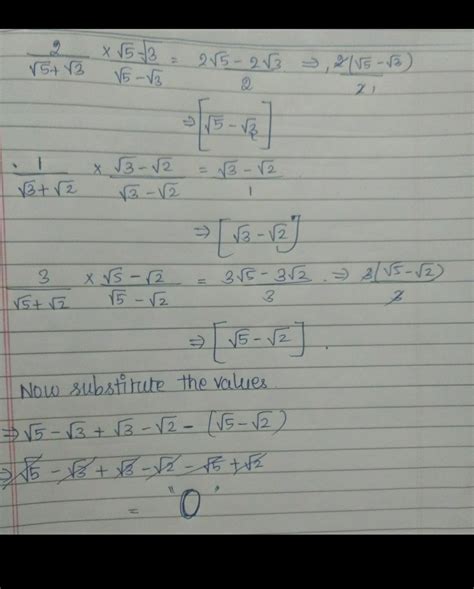 2/(√5+√3) × (√5-√3)/(√5-√3) = (2√5-2√3)/2 ⇒ 2(√5-√3)/2 1
⇒ [√5-√3]
. 1/(√3+√2) × (√3-√2)/(√3-√2) = (√3-√2)/1
⇒ [√3-√2]
3/(√5+√2) × (√5-√2)/(√5-√2) = (3√5-3√2)/3 . ⇒ 3(√5-√2)/3
⇒ [√5-√2] .
Now substitute the values
⇒ √5-√3+√3-√2-(√5-√2)
⇒ √5-√3+√3-√2-√5+√2
= "0"